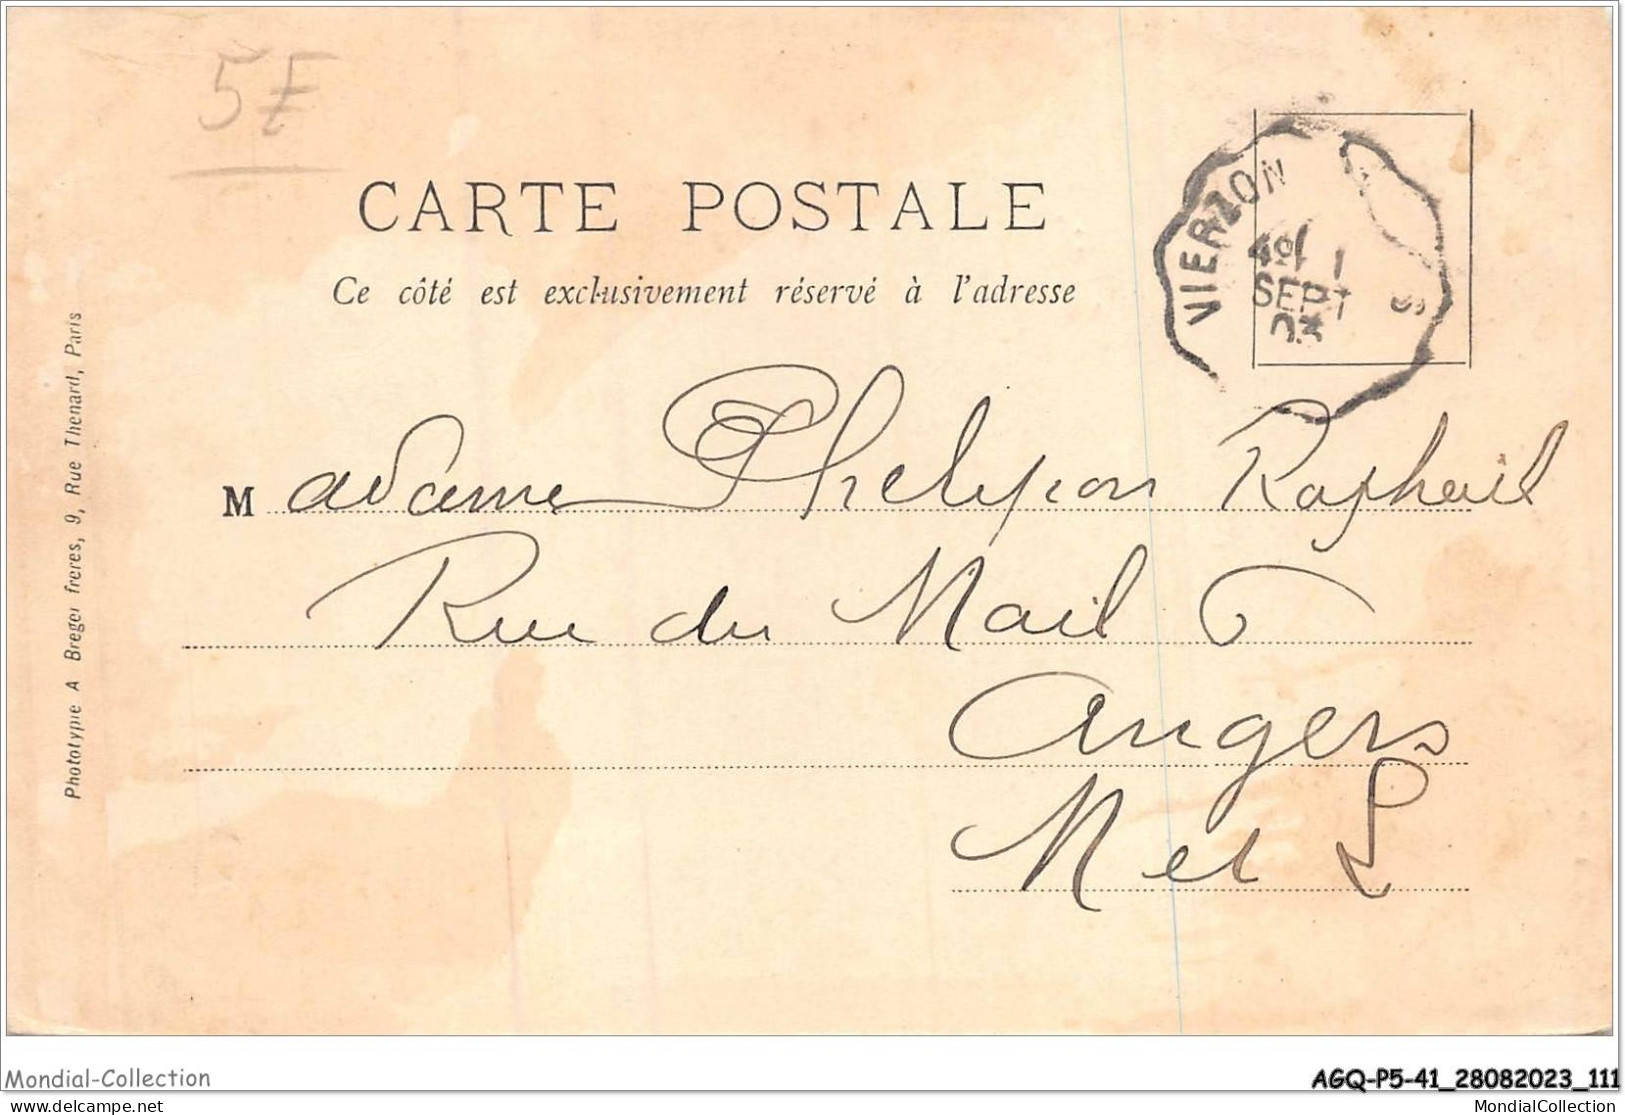 5F
CARTE POSTALE
Ce côté est exclusivement réservé à l'adresse
VIERZON
1
SEPT
03
Madame Phelypon Raphaël
Rue du Mail 6
Angers
M et L
Phototypie A Breger frères, 9, Rue Thenard, Paris
Mondial-Collection
AGQ-P5-41_28082023_111
delcampe.net
MondialCollection